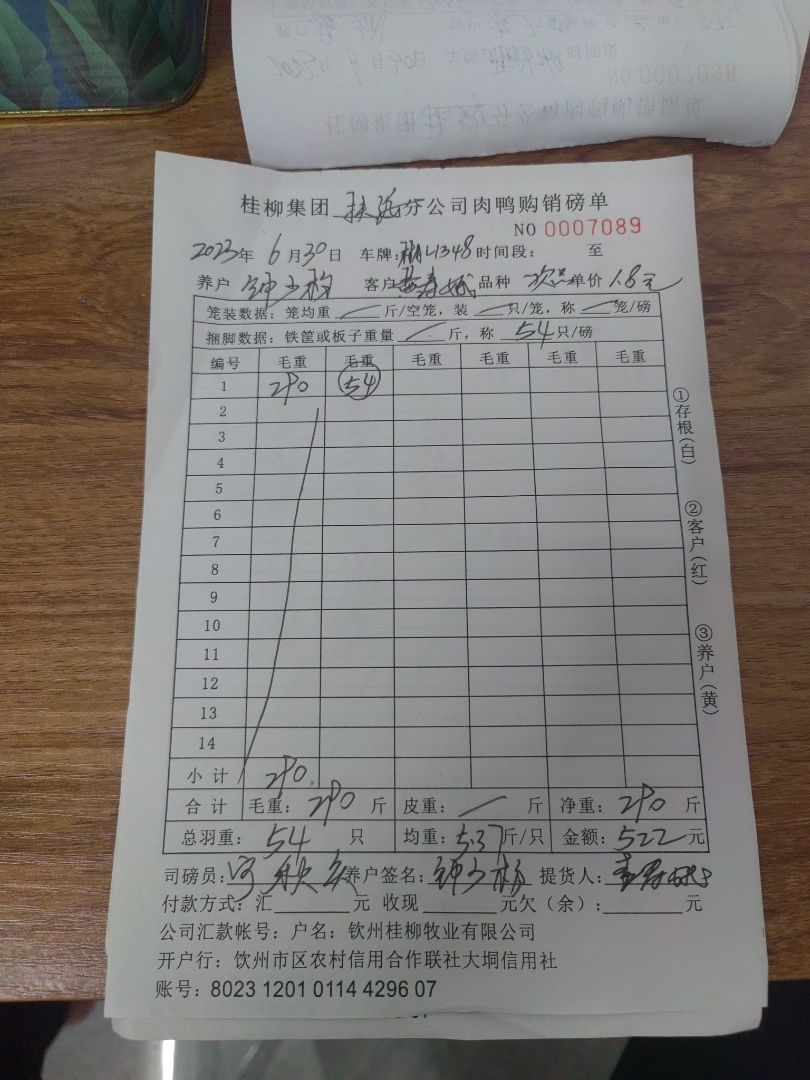 桂柳集团 分公司肉鸭购销磅单
NO 0007089
2023年 6月30日 车牌: L1348 时间段: 至
养户 钟 客户 黄春 品种 次品 单价 1.8元
笼装数据: 笼均重 / 斤/空笼, 装 / 只/笼, 称 / 笼/磅
捆脚数据: 铁筐或板子重量 / 斤, 称 54 只/磅
编号 毛重 毛重 毛重 毛重 毛重 毛重
1 290 54
2
3
4
5
6
7
8
9
10
11
12
13
14
小计 290
合计 毛重: 290 斤 皮重: / 斤 净重: 290 斤
总羽重: 54 只 均重: 5.37斤/只 金额: 522元
司磅员: 养户签名: 钟 提货人:
付款方式: 汇 元 收现 元欠(余): 元
公司汇款帐号: 户名: 钦州桂柳牧业有限公司
开户行: 饮州市区农村信用合作联社大垌信用社
账号: 8023 1201 0114 4296 07
①存根(白)
②客户(红)
③养户(黄)